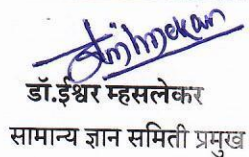 डॉ.ईश्वर म्हसलेकर
सामान्य ज्ञान समिती प्रमुख